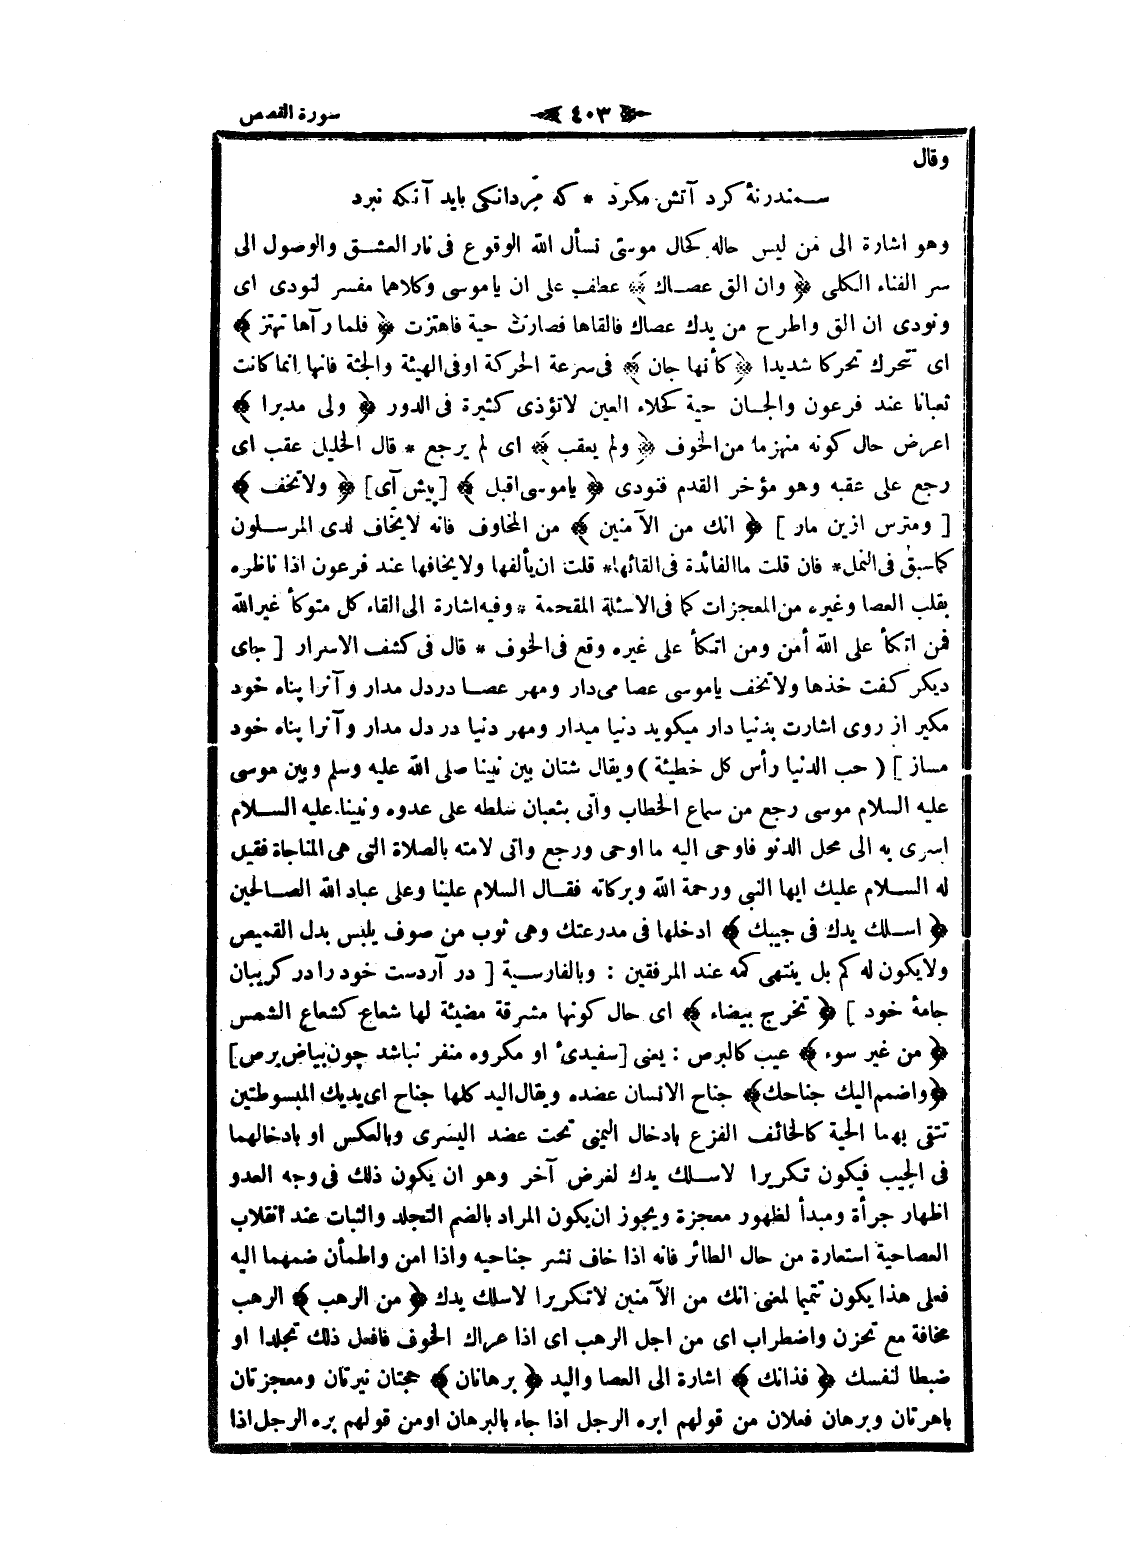 سورة القصص
٤٠٣
وقال
سمندر نۀ كرد آتش مكرد * كه مردانكى بايد آنكه نبرد
وهو اشارة الى من ليس حاله كحال موسى نسأل الله الوقوع فى نار العشق والوصول الى
سر الفناء الكلى ﴿ وان الق عصاك ﴾ عطف على ان ياموسى وكلاهما مفسر لنودى اى
ونودى ان الق واطرح من يدك عصاك فالقاها فصارت حية فاهتزت ﴿ فلما رآها تهتز ﴾
اى تتحرك تحركا شديدا ﴿ كأنها جان ﴾ فى سرعة الحركة اوفى الهيئة والجثة فانها انما كانت
ثعبانا عند فرعون والجان حية كحلاء العين لاتؤذى كثيرة فى الدور ﴿ ولى مدبرا ﴾
اعرض حال كونه منهزما من الخوف ﴿ ولم يعقب ﴾ اى لم يرجع * قال الخليل عقب اى
رجع على عقبه وهو مؤخر القدم فنودى ﴿ ياموسى اقبل ﴾ [پيش آى] ﴿ ولاتخف ﴾
[ ومترس ازين مار ] ﴿ انك من الآمنين ﴾ من المخاوف فانه لايخاف لدى المرسلون
كماسبق فى النمل * فان قلت ماالفائدة فى القائها * قلت ان يألفها ولايخافها عند فرعون اذا ناظره
بقلب العصا وغيره من المعجزات كما فى الاسئلة المقحمة * وفيه اشارة الى القاء كل متوكأ غير الله
فمن اتكأ على الله أمن ومن اتكأ على غيره وقع فى الخوف * قال فى كشف الاسرار [ جاى
ديكر كفت خذها ولاتخف ياموسى عصا مى‌دار ومهر عصا دردل مدار وآنرا پناه خود
مكير از روى اشارت بدنيا دار ميكويد دنيا ميدار ومهر دنيا در دل مدار وآنرا پناه خود
مساز ] ( حب الدنيا رأس كل خطيئة ) ويقال شتان بين نبينا صلى الله عليه وسلم وبين موسى
عليه السلام موسى رجع من سماع الخطاب واتى بثعبان سلطه على عدوه ونبينا عليه السلام
اسرى به الى محل الدنو فاوحى اليه ما اوحى ورجع واتى لامته بالصلاة التى هى المناجاة فقيل
له السلام عليك ايها النبى ورحمة الله وبركاته فقال السلام علينا وعلى عباد الله الصالحين
﴿ اسلك يدك فى جيبك ﴾ ادخلها فى مدرعتك وهى ثوب من صوف يلبس بدل القميص
ولايكون له كم بل ينتهى كمه عند المرفقين : وبالفارسية [ در آردست خود را در كريبان
جامۀ خود ] ﴿ تخرج بيضاء ﴾ اى حال كونها مشرقة مضيئة لها شعاع كشعاع الشمس
﴿ من غير سوء ﴾ عيب كالبرص : يعنى [سفيدئ او مكروه منفر نباشد چون بياض برص]
﴿واضمم اليك جناحك﴾ جناح الانسان عضده ويقال اليد كلها جناح اى يديك المبسوطتين
تتقى بهما الحية كالخائف الفزع بادخال اليمنى تحت عضد اليسرى وبالعكس او بادخالهما
فى الجيب فيكون تكريرا لاسلك يدك لغرض آخر وهو ان يكون ذلك فى وجه العدو
اظهار جرأة ومبدأ لظهور معجزة ويجوز ان يكون المراد بالضم التجلد والثبات عند انقلاب
العصاحية استعارة من حال الطائر فانه اذا خاف نشر جناحيه واذا امن واطمأن ضمهما اليه
فعلى هذا يكون تتميما لمعنى انك من الآمنين لاتكريرا لاسلك يدك ﴿ من الرهب ﴾ الرهب
مخافة مع تحزن واضطراب اى من اجل الرهب اى اذا عراك الخوف فافعل ذلك تجلدا او
ضبطا لنفسك ﴿ فذانك ﴾ اشارة الى العصا واليد ﴿ برهانان ﴾ حجتان نيرتان ومعجزتان
باهرتان وبرهان فعلان من قولهم ابره الرجل اذا جاء بالبرهان اومن قولهم بره الرجل اذا